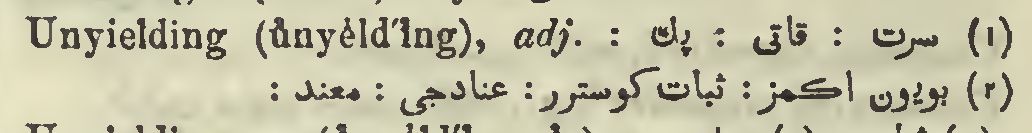 Unyielding (ŭnyèld′ĭng), adj. : (۱) سرت : قاتی : پك :
(۲) بویون اکمز : ثبات کوسترر : عنادجی : معند :